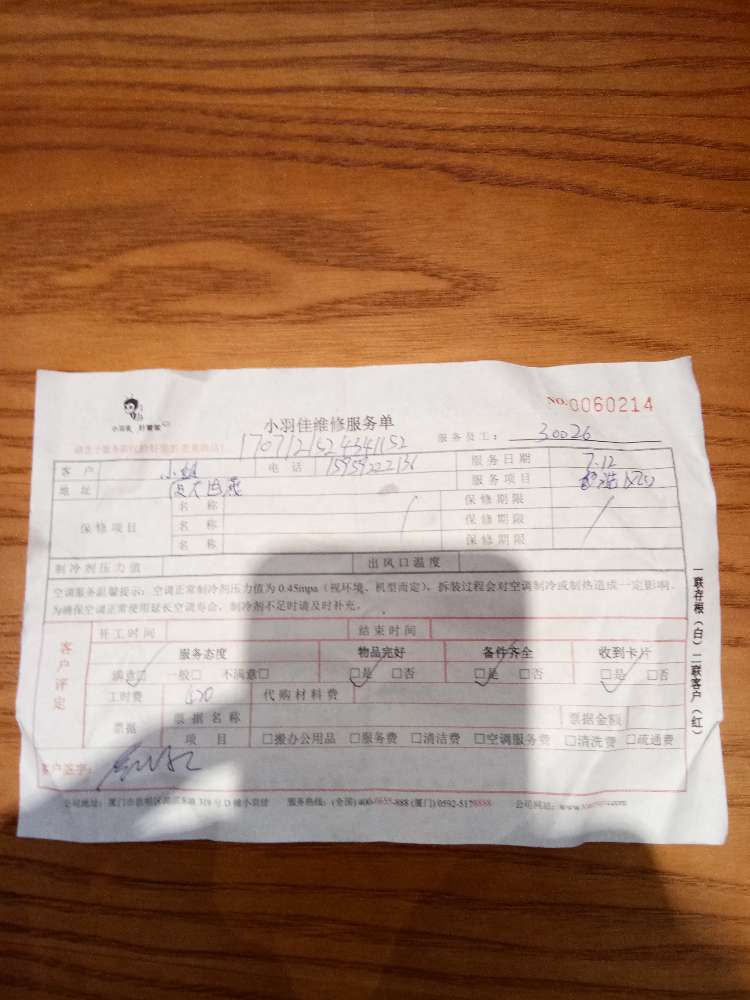 NO.0060214
小羽佳维修服务单
服务员工： 30026
1707121524341152
客户 小姐 电话 15959222136 服务日期 7.12
地址 服务项目
保修项目 名称 保修期限
名称 保修期限
名称 保修期限
制冷剂压力值 出风口温度
空调服务温馨提示：空调正常制冷剂压力值为 0.45mpa（视环境、机型而定），拆装过程会对空调制冷或制热造成一定影响，
为确保空调正常使用延长空调寿命，制冷剂不足时请及时补充。
客户评定
开工时间 结束时间
服务态度 物品完好 备件齐全 收到卡片
满意□ 一般□ 不满意□ □是 □否 □是 □否 □是 □否
工时费 420 代购材料费
票据 票据名称 票据金额
项目 □搬办公用品 □服务费 □清洁费 □空调服务费 □清洗费 □疏通费
客户签字：
公司地址：厦门市 319 号 D 幢小羽佳 服务热线：(全国)400-6655-888 (厦门)0592-5178888 公司网站：
一联存根（白）二联客户（红）